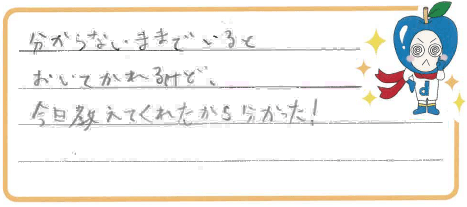 分からないままでいると
おいてかれるけど、
今日教えてくれたから分かった!
d